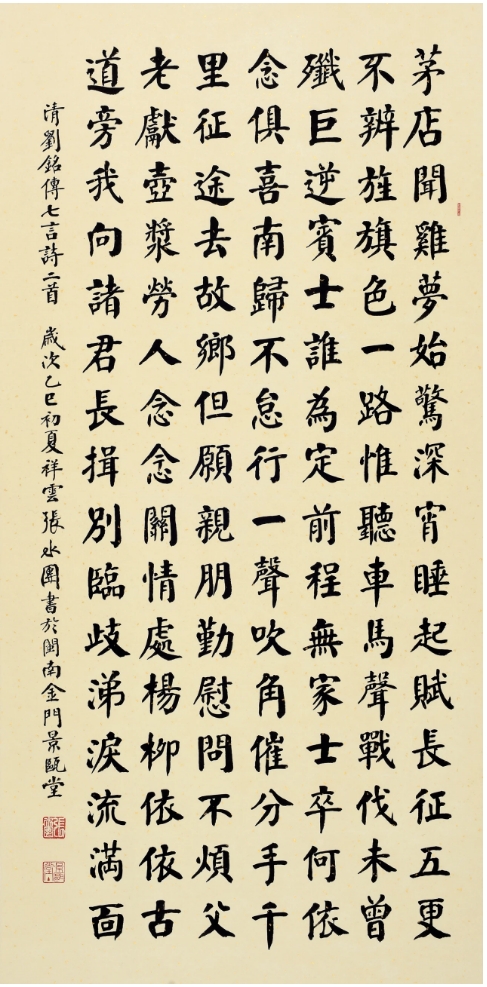 茅店聞雞夢始驚深宵睡起賦長征五更
不辨旌旗色一路惟聽車馬聲戰伐未曾
殲巨逆賓士誰為定前程無家士卒何依
念俱喜南歸不怠行一聲吹角催分手千
里征途去故鄉但願親朋勤慰問不煩父
老獻壺漿勞人念念關情處楊柳依依古
道旁我向諸君長揖別臨歧涕淚流滿面
清劉銘傳七言詩二首 歲次乙巳初夏祥雲張水團書於閩南金門景甌堂